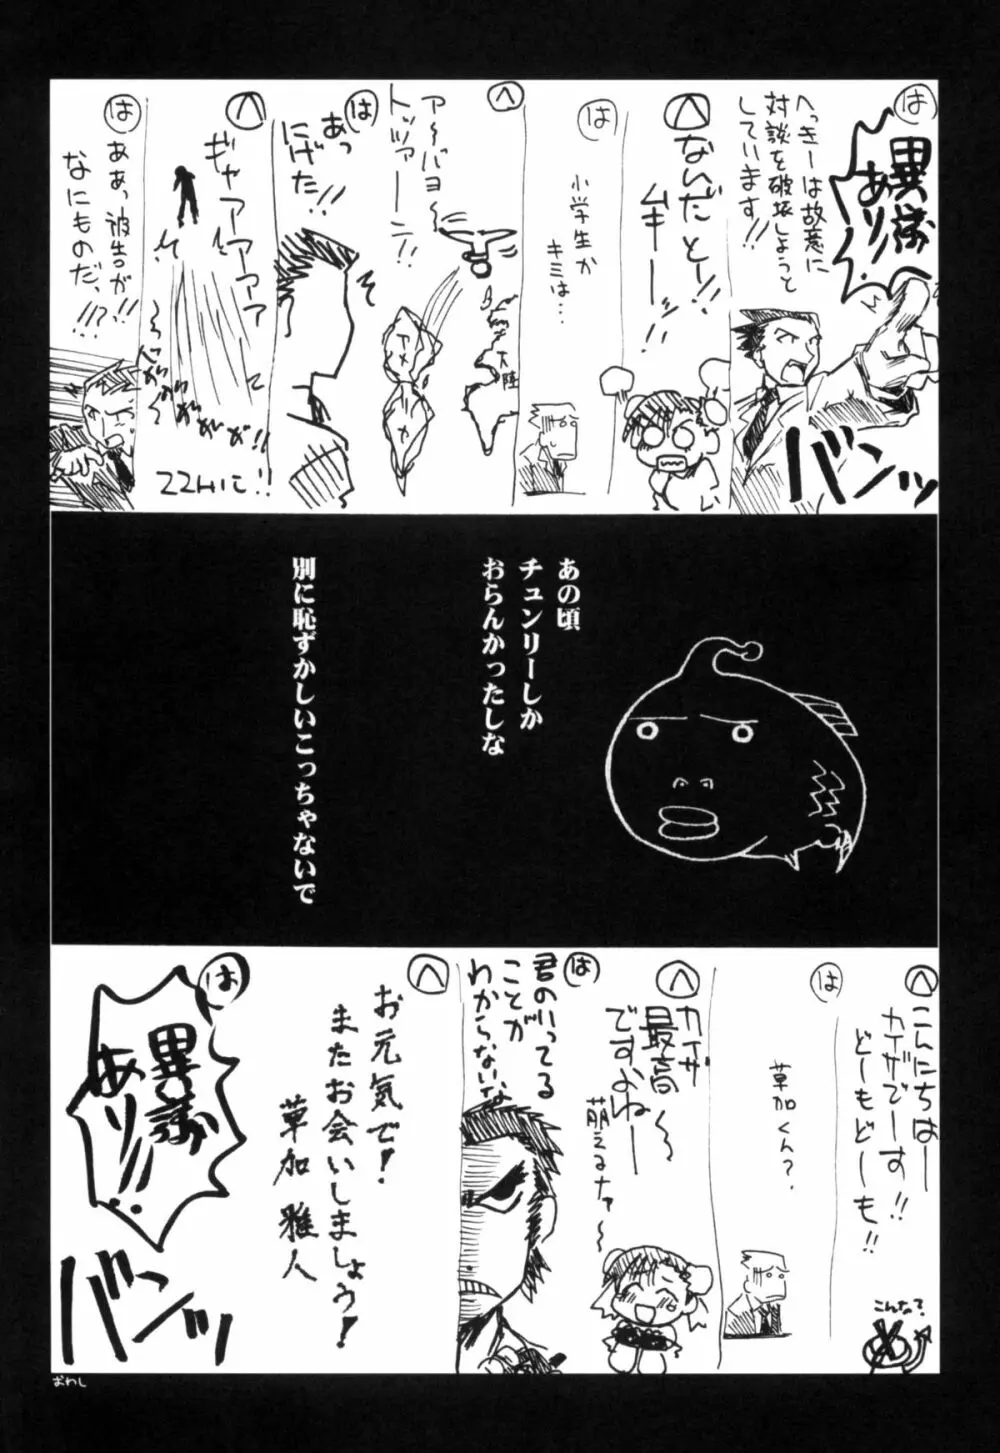 は
異議
あり!!
へっきーは故意に
対談を破壊しようと
しています!!
バンッ
へ
なんだとー!!
ムキーー!!
は
小学生か
キミは…
へ
ア〜バヨ〜
トッツァーン!!
大陸
アメ
リカ
は
あっ
にげた!!
へ
ギャアアアアア
ZZHに!!
は
ああっ被告が
なにものだ、!!?!!
あの頃
チュンリーしか
おらんかったしな
別に恥ずかしいこっちゃないで
へ
こんにちはー
カイザでーす!!
どーもどーも!!
こんなで?
は
草加くん?
へ
カイザ
最高〜
ですよねー
萌えるナァ〜
は
君のいってる
ことが
わからないな
へ
お元気で!
またお会いしましょう!
草加 雅人
は
異議
あり!!
バンッ
おわし